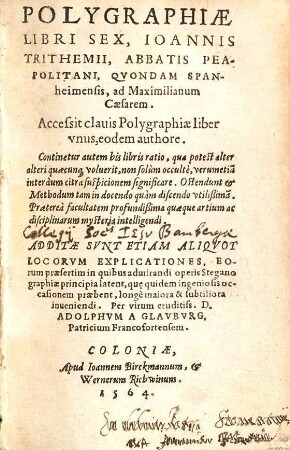 POLYGRAPHIÆ
LIBRI SEX, IOANNIS
TRITHEMII, ABBATIS PEA-
POLITANI, QVONDAM SPAN-
heimensis, ad Maximilianum
Cæsarem.
Accessit clauis Polygraphiæ liber
vnus, eodem authore.
Continetur autem his libris ratio, qua potest alter
alteri quæcunque voluerit, non solùm occultè, verumetiã
interdum citra suspicionem significare. Ostendunt &
Methodum tam in docendo quàm discendo vtilissimã.
Prætereà facultatem profundissima quæque artium ac
disciplinarum mysteria intelligendi.
Collegij Soctis IESV Bambergæ
ADDITÆ SVNT ETIAM ALIQVOT
LOCORVM EXPLICATIONES, EO-
rum præsertim in quibus admirandi operis Stegano
graphiæ principia latent, quæ quidem ingeniosis oc-
casionem præbent, longè maiora & subtiliora
inueniendi. Per virum eruditiss. D.
ADOLPHVM A GLAVBVRG,
Patricium Francofortensem.
COLONIÆ,
Apud Ioannem Birckmannum, &
Wernerum Richwinum.
1564.